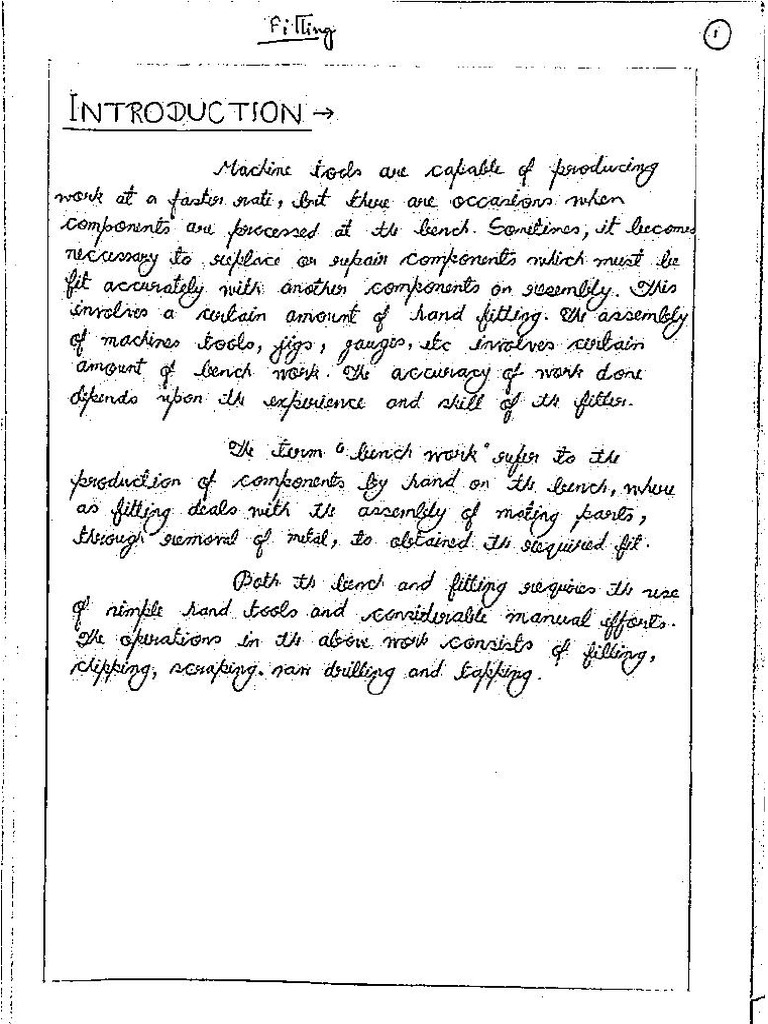 Fitting
1
INTRODUCTION →
Machine tools are capable of producing
work at a faster rate, but there are occasions when
components are processed at the bench. Sometimes, it becomes
necessary to replace or repair components which must be
fit accurately with another components on resembly. This
involves a certain amount of hand fitting. The assembly
of machines tools, jigs, gauges, etc involves certain
amount of bench work. The accuracy of work done
depends upon the experience and skill of the fitter.
The term "bench work" refer to the
production of components by hand on the bench, where
as fitting deals with the assembly of mating parts,
through removal of metal, to obtained the required fit.
Both the bench and fitting requires the use
of simple hand tools and considerable manual efforts.
The operations in the above work consists of filling,
chipping, scraping. saw drilling and tapping.